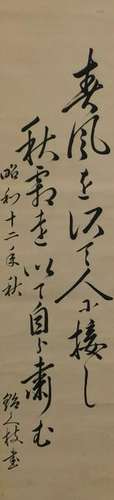 春風を以て人に接し
秋霜を以て自ら粛む
昭和十二年秋